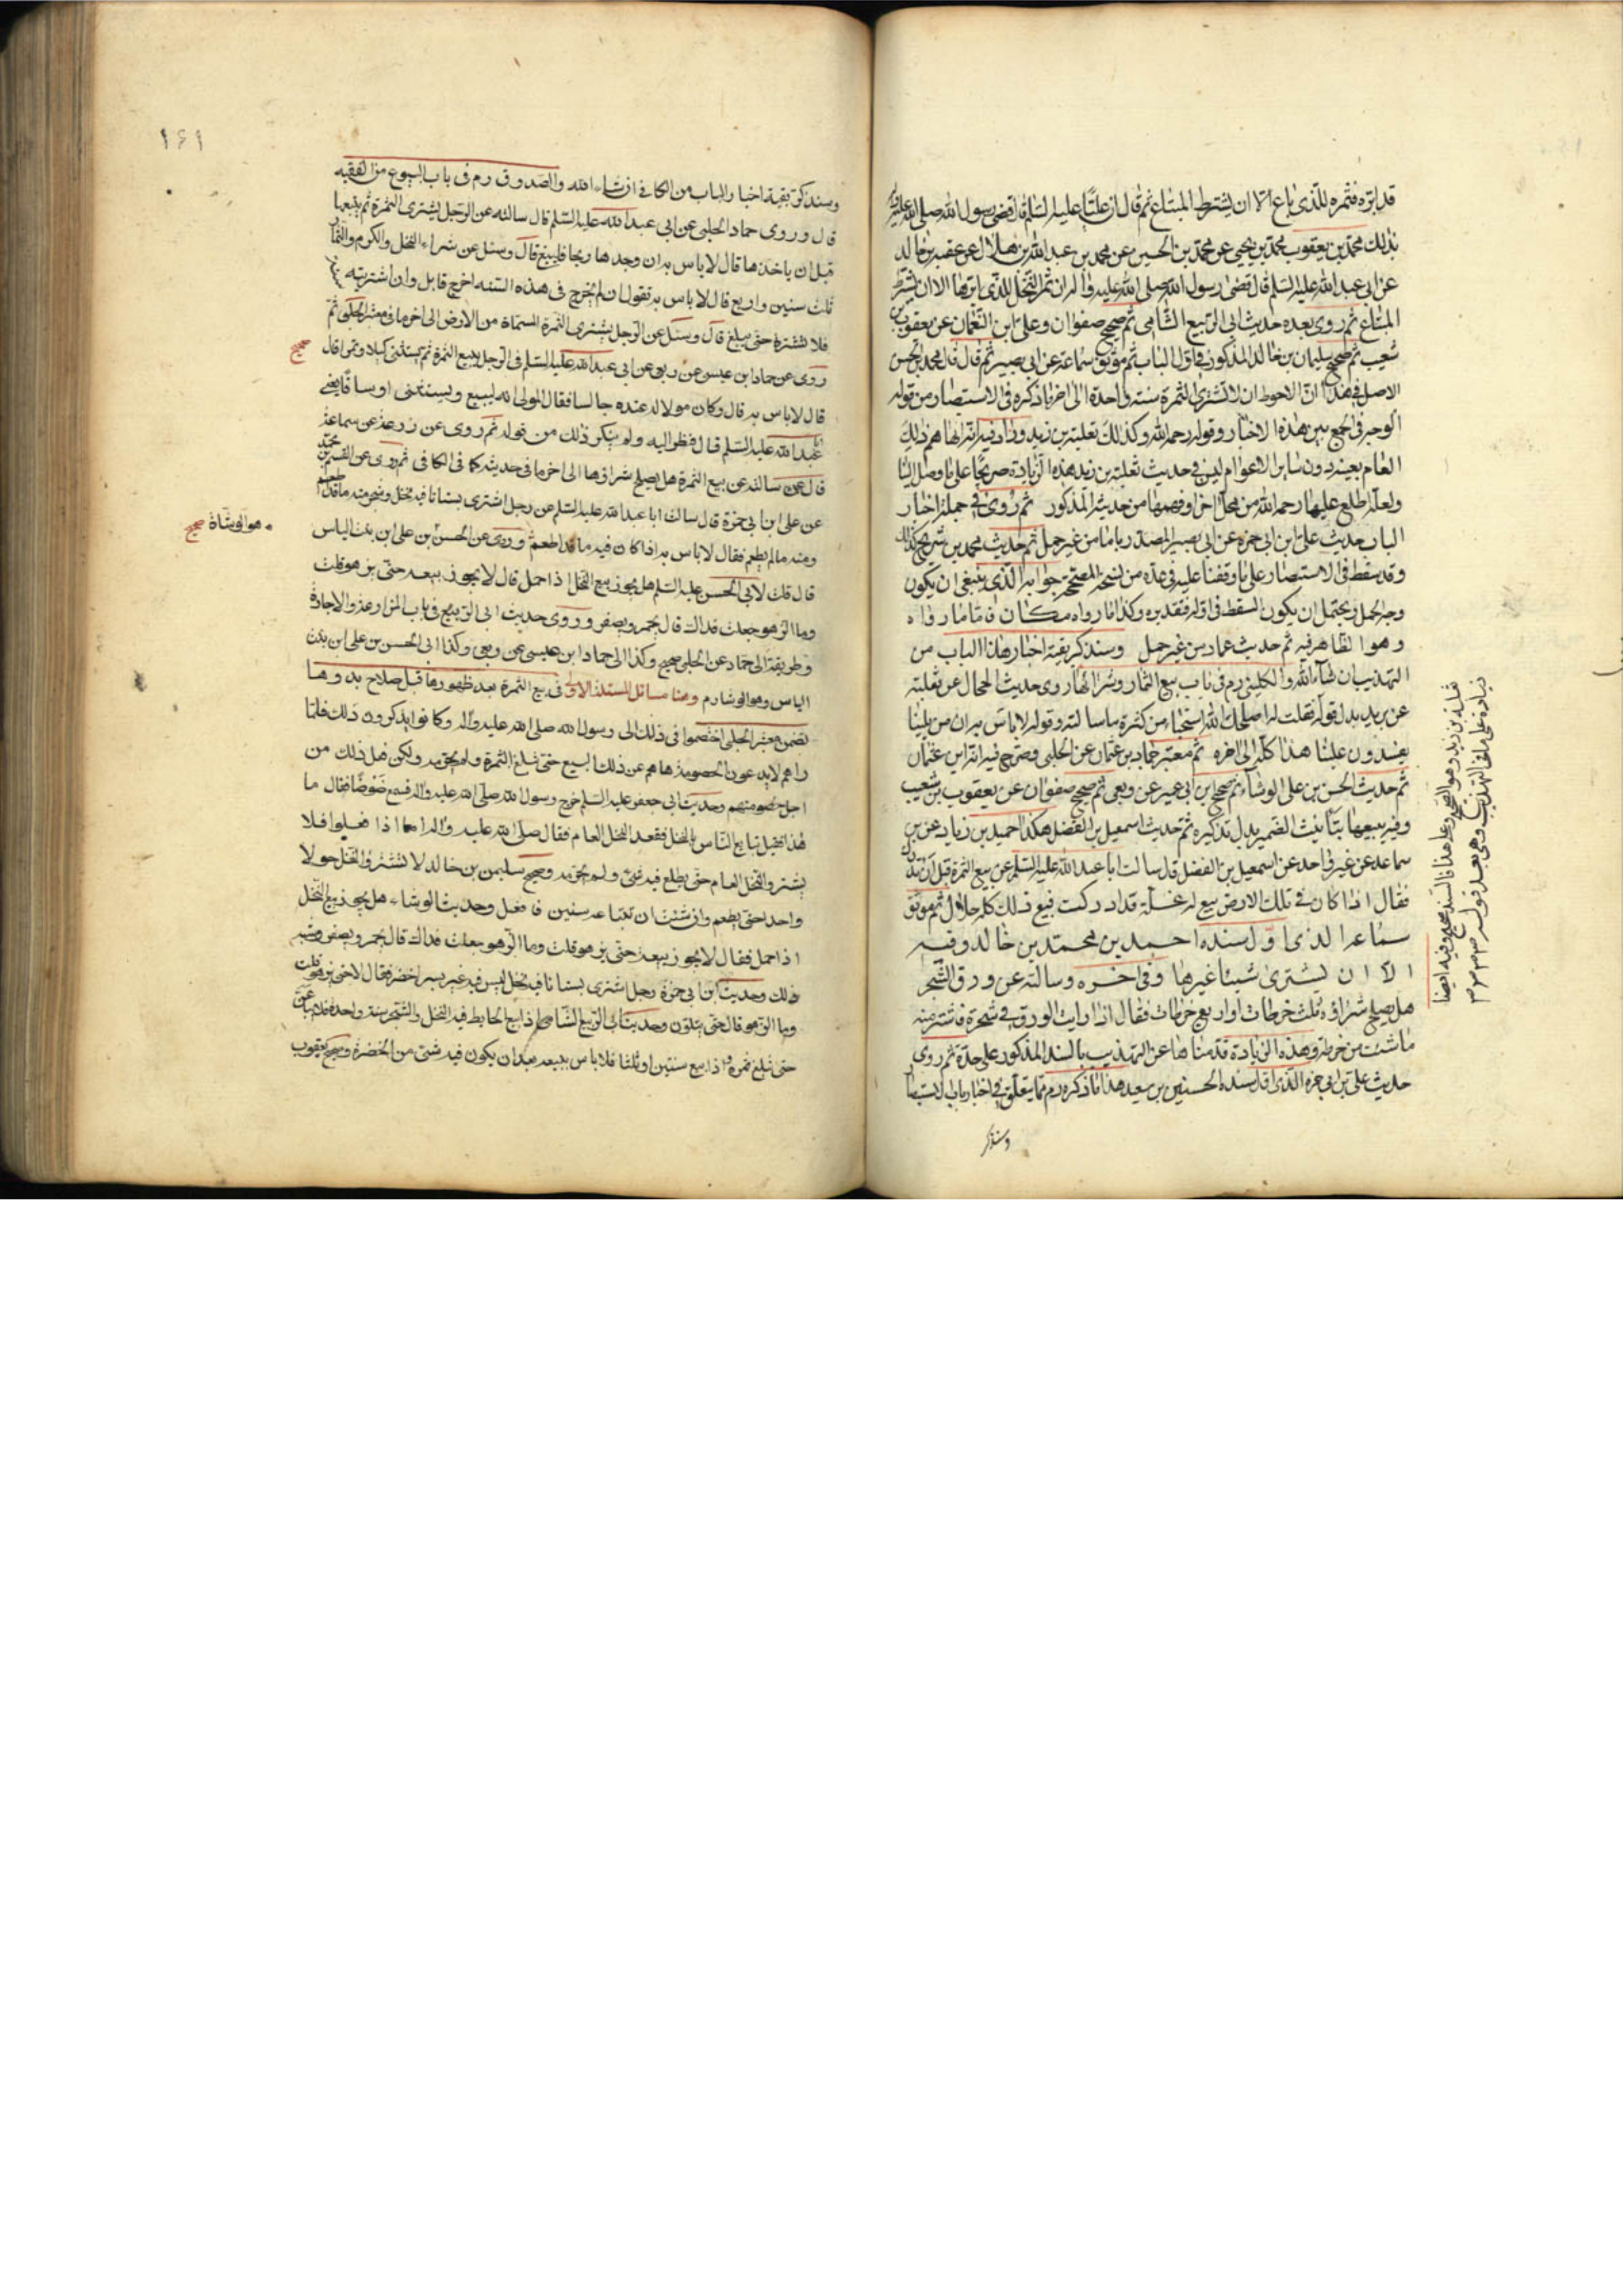 قد ابّره فثمره للّذى باع الّا ان يشترط المبتاع ثم قال ان عليّا عليه السّلم قال قضى رسول الله صلى الله عليه
بذلك محمّد بن يعقوب محمّد بن يحيى عن محمّد بن الحسين عن محمد بن عبد الله بن هلال عن عقبه بن خالد
عن ابى عبد الله عليه السّلم قال قضى رسول الله صلى الله عليه واله ان ثمر النّخل للّذى ابّرها الا ان يشترط
المبتاع ثم روى بعده حديث ابى الربيع الشّامى ثم صحيح صفوان وعلى ابن النّعمان عن يعقوب بن
شعيب ثم صحيح سليمان بن خالد المذكور فى اول الباب ثم موثق سماعة عن ابى بصير ثم قال قال محمد بن الحسن
الاصل فى هذا انّ الاحوط ان لا تشترى الثمرة سنة واحدة الى اخر ما ذكره فى الاستبصار من قوله
الوجه فى الجمع بين هذه الاخبار وقوله رحمه الله وكذلك ثعلبة بن زيد وزاد فيه انّه انما هم ذلك
العام بعينه دون ساير الاعوام ليس فى حديث ثعلبة بن زيد هذه الزيادة صريحا على ما وصل الينا
ولعلّه اطلع عليها رحمه الله من محل اخر او فهمها من حديثه المذكور ثم روى فى جملة اخبار
الباب حديث على ابن ابى حمزه عن ابى بصير المصدر باما من غير حمل ثم حديث محمد بن شريح كذلك
وقد سقط فى الاستبصار على ما وقفنا عليه فى عدّه من نسخه المصحّحة جوابه الّذى ينبغى ان يكون
وجه الحمل ويحتمل ان يكون السقط فى اوله فتقديره وكذا ما رواه مكان فاما ما رواه
وهو الظاهر فيه ثم حديث عمار من غير حمل وسنذكر بقية اخبار هذا الباب من
التهذيب ان شاء الله والكلينى رم فى باب بيع الثمار وشرائها روى حديث الحجال عن ثعلبة
عن بريد بدل قوله فقلت له اصلحك الله استحيا من كثرة ما سالته وقوله لا باس به ان من يلينا
يفسدون علينا هذا كله الى اخره ثم معتبر حماد بن عثمان عن الحلبى وصرح فيه انّه ابن عثمان
ثم حديث الحسن بن على الوشاء ثم صحيح ابن ابى عمير عن ربعى ثم صحيح صفوان عن يعقوب بن شعيب
وفيه يبيعها بتانيث الضمير بدل تذكيره ثم حديث اسمعيل بن الفضل هكذا حميد بن زياد عن بن
سماعه عن غير واحد عن اسمعيل بن الفضل قال سالت ابا عبد الله عليه السّلم عن بيع الثمرة قبل ان تدرك
فقال اذا كان فى تلك الارض بيع له غلّة قد ادركت فبيع ذلك كله حلال ثم موثق
سماعه الذى اوّل سنده احمد بن محمّد بن خالد وفيه
الا ان يشترى شيئا غيرها وفى اخره وسالته عن ورق الشّجر
هل يصلح شراؤه ثلث خرطات او اربع خرطات فقال اذا رايت الورق فى شجرة فاشتر منه
ما شئت من خرطه وهذه الزيادة قدّمناها عن التهذيب بالسند المذكور على حدة ثم روى
حديث على بن ابى حمزه الّذى اوّل سنده الحسين بن سعيد هذا ما ذكره رم مما يتعلّق باخبار باب الاستبصار
وسنذكر
ثعلبة بن زيد وهو الصحيح وعلى هذا فالسند صحيح وفيه ايضا
زيادة على ما فى التهذيب وهى بعد قوله
١٦١
وسنذكر بقية اخبار الباب من الكافى ان شاء الله والصّدوق رم فى باب البيوع من الفقيه
قال وروى حماد الحلبى عن ابى عبد الله عليه السّلم قال سالته عن الرّجل يشترى الثمرة ثم يبيعها
قبل ان ياخذها قال لا باس به ان وجد بها ربحا فليبع قال وسئل عن شراء النخل والكرم والثمار
ثلث سنين واربع قال لا باس به تقول ان لم يخرج فى هذه السّنه اخرج قابل وان اشتريته
فلا تشتره حتى يبلغ قال وسئل عن الرّجل يشترى الثمرة المسماة من الارض الى اخر ما فى معتبر الحلبى ثم
روى عن حماد ابن عيسى عن ربعى عن ابى عبد الله عليه السّلم فى الرّجل يبيع الثمرة ثم يستثنى كيلا وتمرا قال
صحيح
قال لا باس به قال وكان مولا له عنده جالسا فقال المولى انه ليبيع ويستثنى اوساقا يعنى
ابا عبد الله عليه السّلم قال فنظر اليه ولم ينكر ذلك من قوله ثم روى عن زرعة عن سماعة
قال سالته عن بيع الثمرة هل يصلح شراؤها الى اخر ما فى حديثه كما فى الكافى ثم روى عن القسم بن محمّد
عن على ابن ابى حمزة قال سالت ابا عبد الله عليه السّلم عن رجل اشترى بستانا فيه نخل وشجر منه ما قد اطعم
ومنه ما لم يطعم فقال لا باس به اذا كان فيه ما قد اطعم وروى عن الحسن بن على ابن بنت الياس
هو الوشاة صحيح
قال قلت لابى الحسن عليه السّلم هل يجوز بيع النّخل اذا حمل قال لا يجوز بيعه حتّى يزهو قلت
وما الزّهو جعلت فداك قال يحمر ويصفر وروى حديث ابى الرّبيع فى باب المزارعة والاجارة
وطريقه الى حمّاد عن الحلبى صحيح وكذا الى حماد ابن عيسى عن ربعى وكذا الى الحسن بن على ابن بنت
الياس وهو الوشا رم وهنا مسائل المسئلة الاولى فى بيع الثمرة بعد ظهورها قبل صلاح بدوها
تضمن معتبر الحلبى اختصموا فى ذلك الى رسول الله صلى الله عليه واله وكانوا يذكرون ذلك فلمّا
راهم لا يدعون الخصومة نهاهم عن ذلك البيع حتى تبلغ الثمرة ولم يحرّمه ولكن فعل ذلك من
اجل خصومتهم وحديث ابى جعفر عليه السّلم خرج رسول الله صلّى الله عليه واله فسمع ضوضا فقال ما
هذا فقيل تبايع النّاس بالنّخل فقعد النخل العام فقال صلّى الله عليه واله اما اذا فعلوا فلا
يشتروا النّخل العام حتى يطلع فيه شىء ولم يحرّمه وصحيح سليمن بن خالد لا تشتروا النّخل حولا
واحدا حتى يطعم وان شئت ان تبتاعه سنين فافعل وحديث الوشاء هل يجوز بيع النّخل
اذا حمل فقال لا يجوز بيعه حتّى يزهو قلت وما الزّهو جعلت فداك قال يحمر ويصفر وشبه
ذلك وحديث ابن ابى حمزة رجل اشترى بستانا فيه نخل ليس فيه غير بسر اخضر فقال لا حتى يزهو قلت
وما الزهو قال حتّى يتلوّن وحديث ابى الربيع الشّامى اذا بيع الحايط فيه النخل والشّجر سنة واحدة فلا يباعن
حتى تبلغ ثمره واذا بيع سنتين او ثلثا فلا باس ببيعه بعد ان يكون فيه شىء من الخضرة وصحيح يعقوب